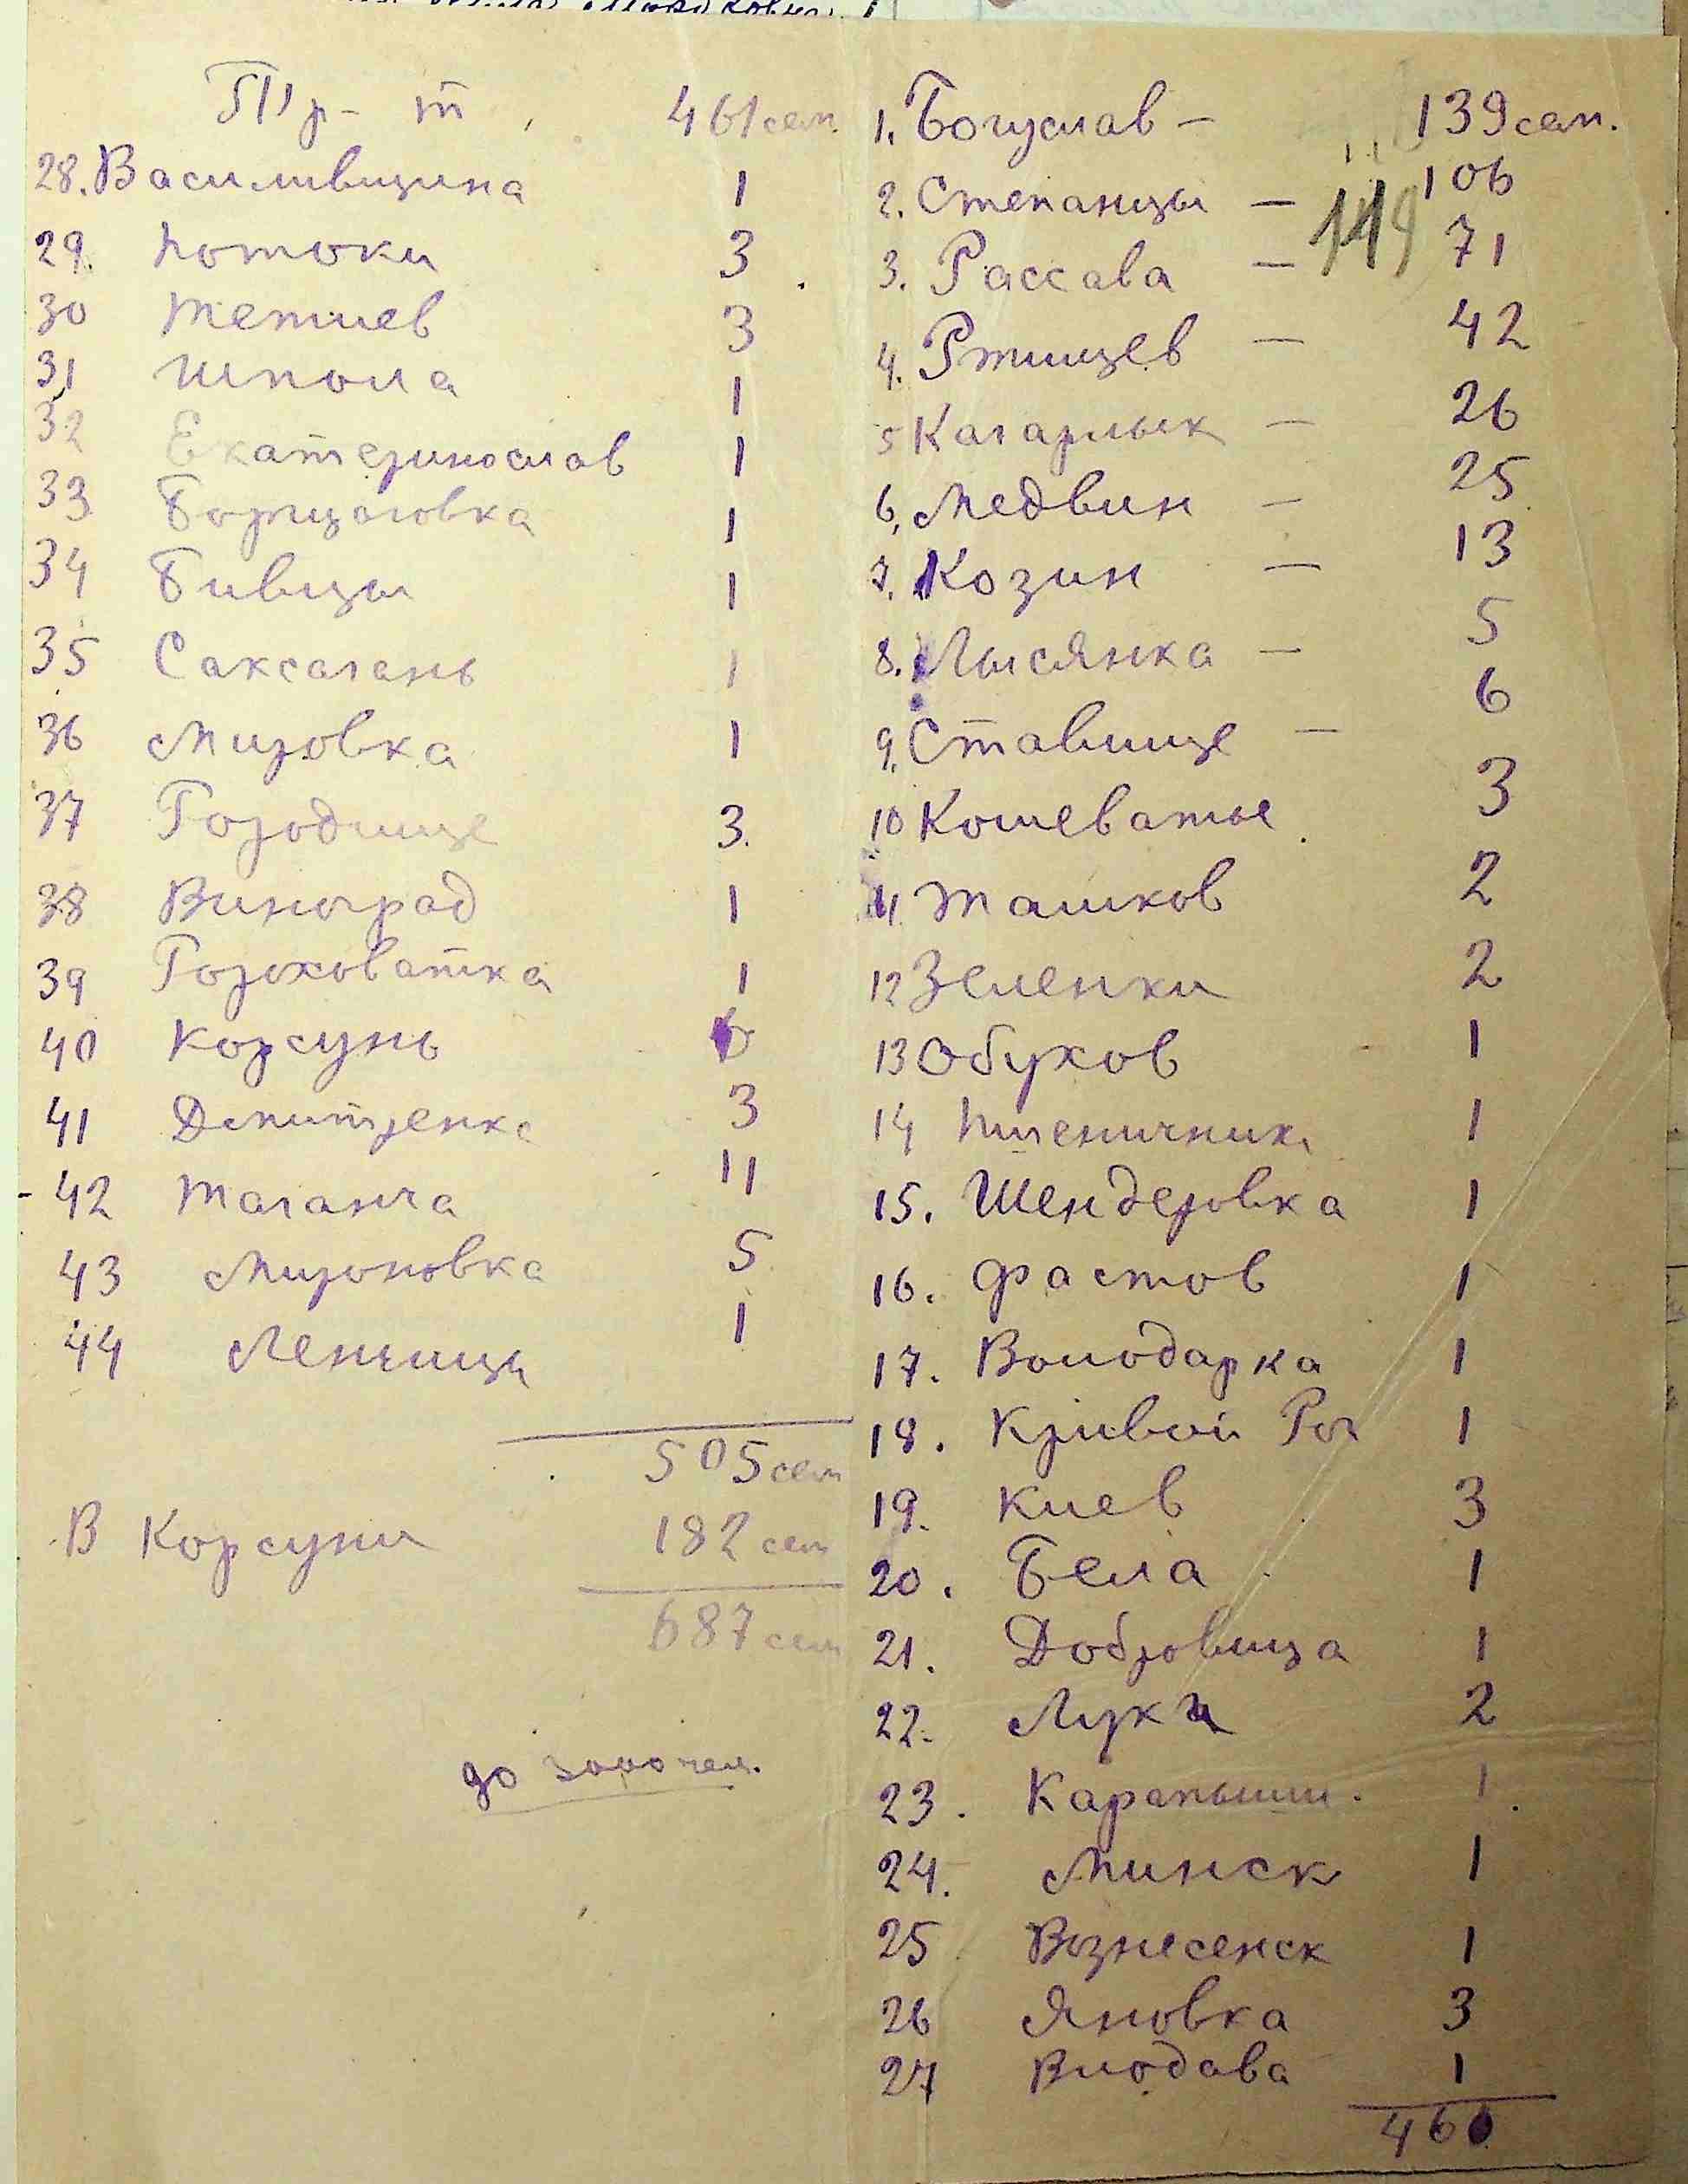 1. Богуслав — 139 сем.
2. Степанцы — 106
119
3. Рассава — 71
4. Ржищев — 42
5 Кагарлык — 26
6. Медвин — 25
7. Козин — 13
8. Лысянка — 5
9. Ставище — 6
10 Кошеватое 3
11 Ташков 2
12 Зеленки 2
13 Обухов 1
14 Пшеничники 1
15. Шендеровка 1
16. Фастов 1
17. Володарка 1
18. Кривой Рог 1
19. Киев 3
20. Бела 1
21. Добровица 1
22. Лука 2
23. Карапыши 1
24. Минск 1
25 Вознесенск 1
26 Яновка 3
27 Влодава 1
461
Пр-т 461 сем.
28. Василивщина 1
29. Потоки 3
30 Тетиев 3
31 Шпола 1
32 Екатеринослав 1
33 Борщаговка 1
34 Бивцы 1
35 Саксагань 1
36 Мировка 1
37 Городище 3.
38 Виноград 1
39 Гороховатка 1
40 Корсунь 6
41 Дмитренка 3
42 Таганча 11
43 Мироновка 5
44 Ленчица 1
505 сем
В Корсуни 182 сем
687 сем
до 3000 чел.